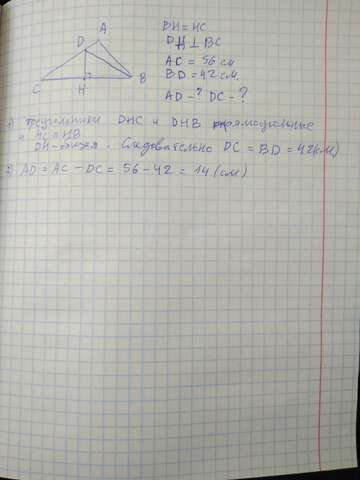 A
D
C
H
B
BH = HC
DH ⊥ BC
AC = 56 см
BD = 42 см.
AD - ? DC - ?
1) треугольники DHC и DHB прямоугольные
и HC = HB
DH - общая. Следовательно DC = BD = 42 (см)
2) AD = AC - DC = 56 - 42 = 14 (см)